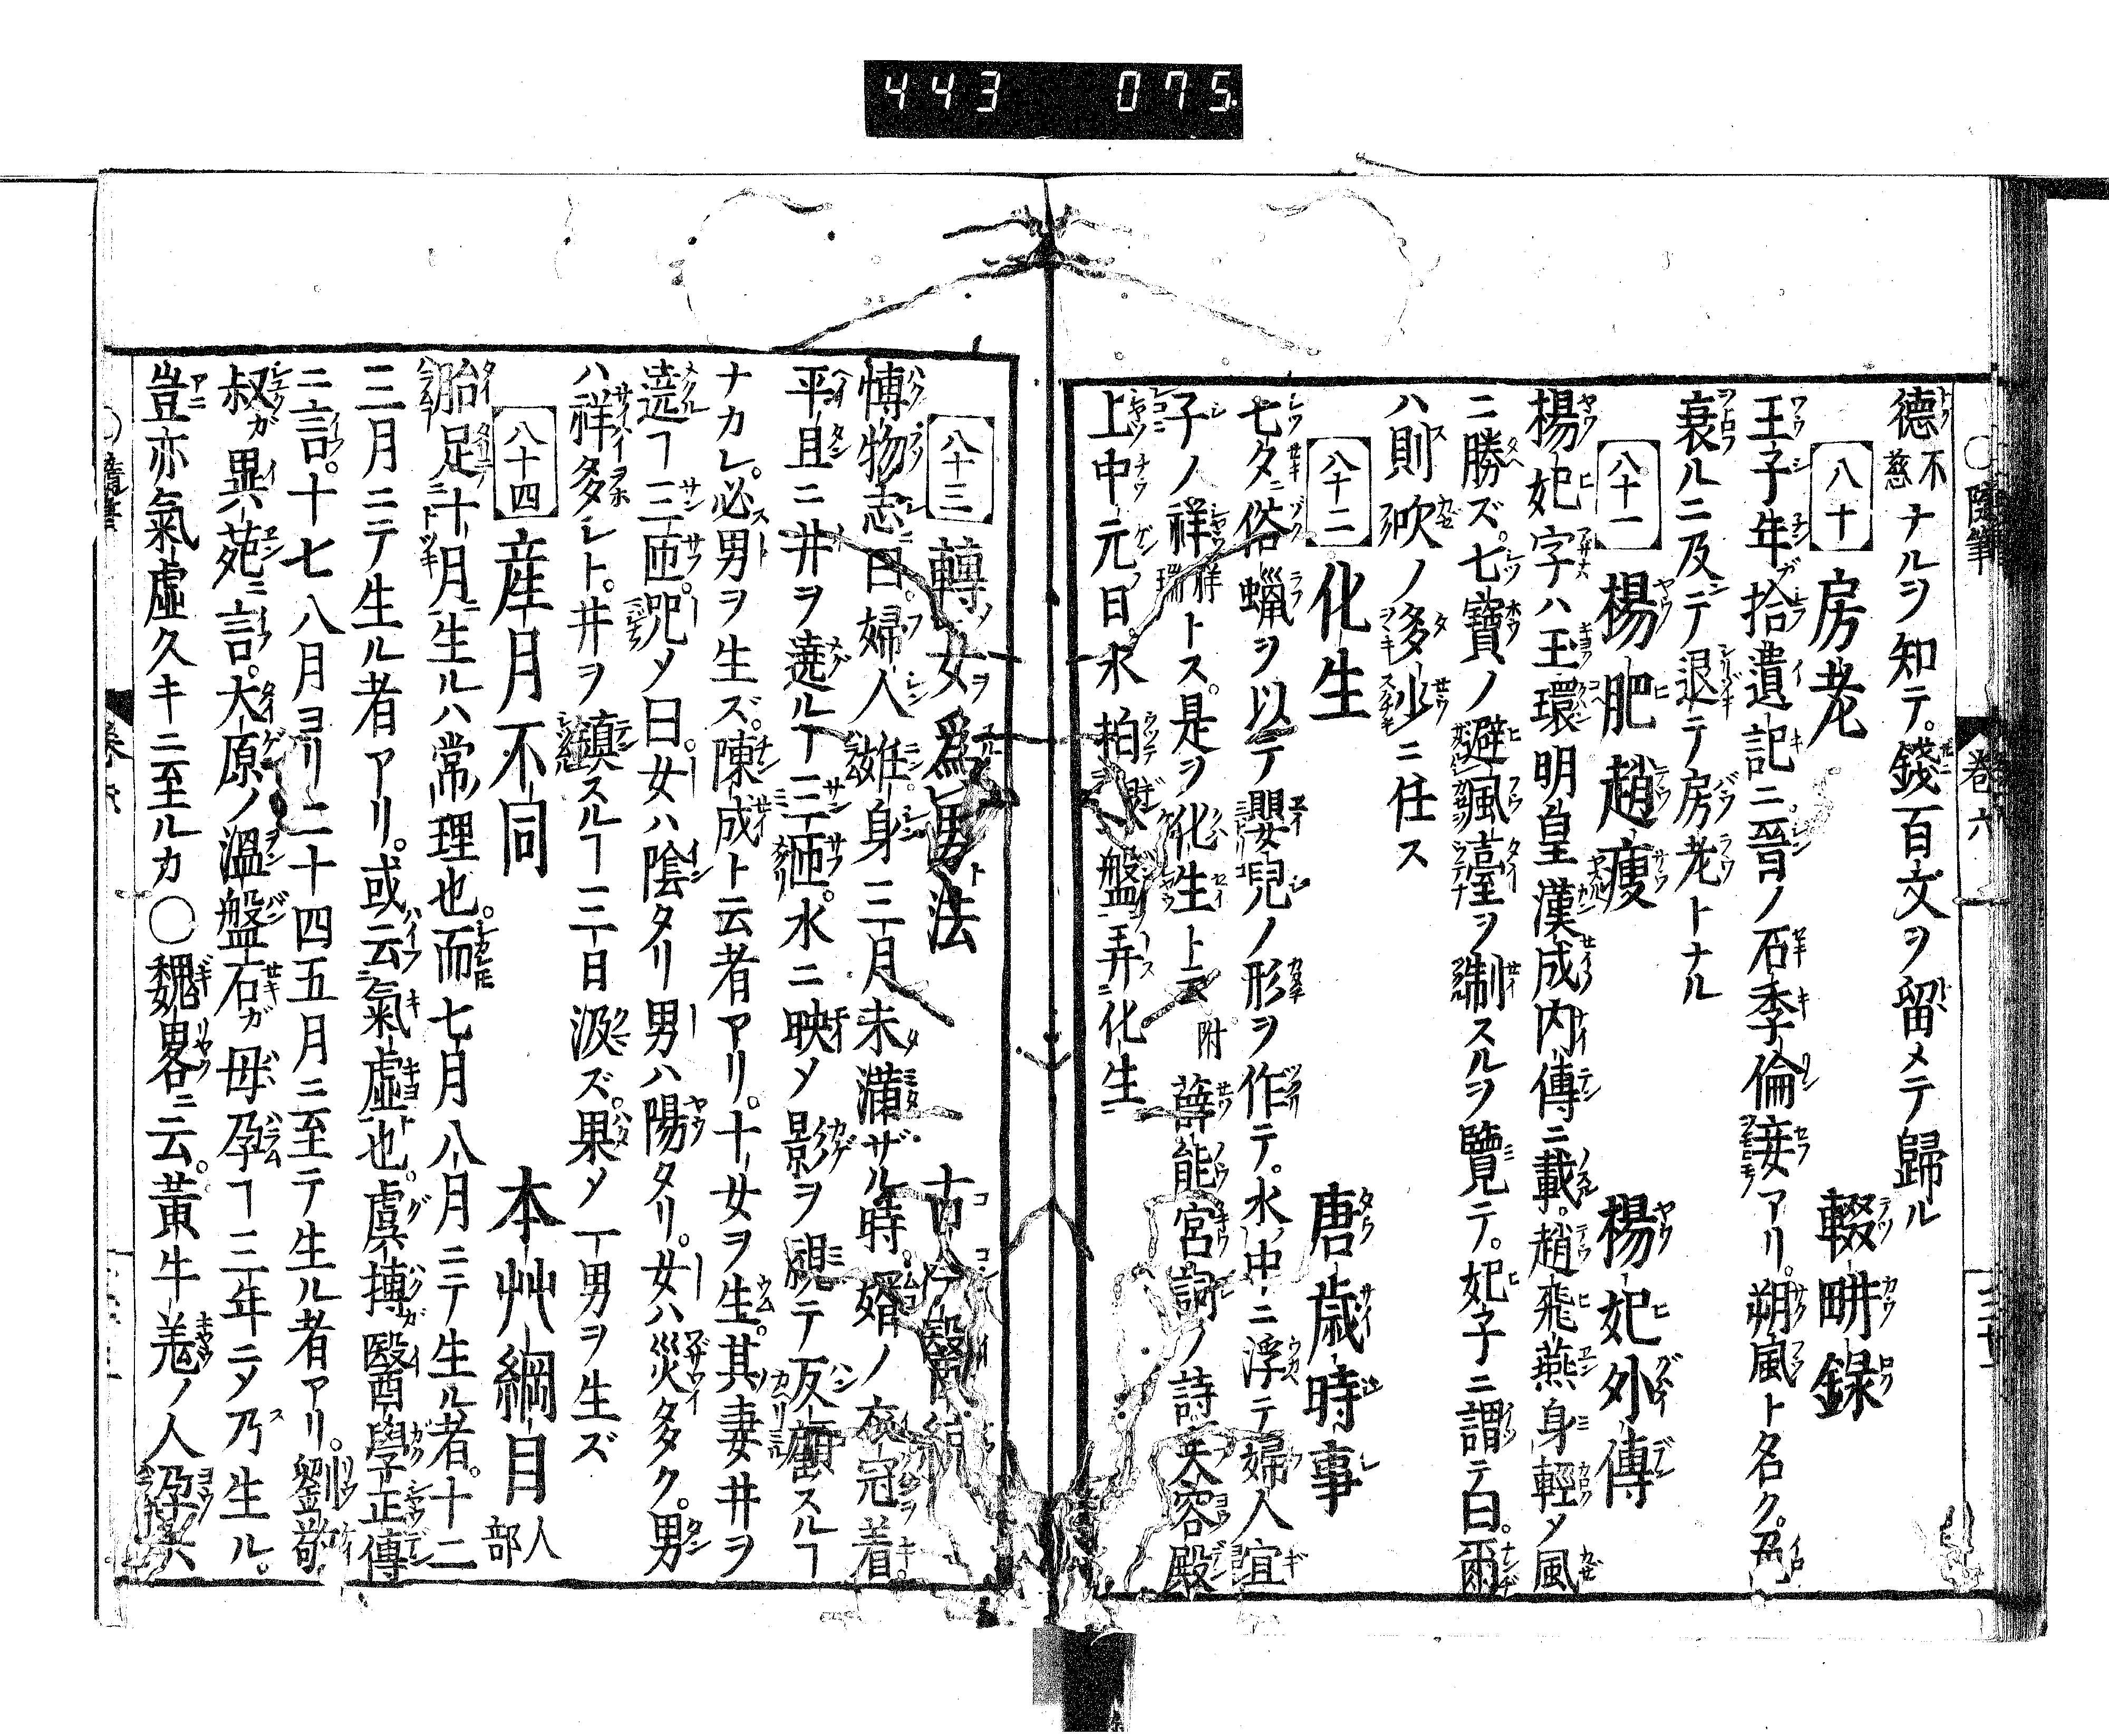 443 075
○隨筆 卷六
德不慈ナルヲ知テ。錢百文ヲ留メテ歸ル
八十 房老 輟畊録
王子年ガ拾遺記ニ晉ノ石季倫妾アリ。朔風ト名ク。色
衰ルニ及テ退テ房老トナル
八十一 楊肥趙瘦 楊妃外傳
楊妃字ハ玉環明皇漢成内傳ニ載。趙飛燕身輕メ風
ニ勝ズ。七寶ノ避風臺ヲ制スルヲ覽テ。妃子ニ謂テ曰。爾
ハ則吹ノ多少ニ任ス
八十二 化生 唐歲時事
七夕ニ俗蠟ヲ以テ嬰兒ノ形ヲ作テ。水中ニ浮テ婦人宜
子ノ祥祥瑞トス。是ヲ化生ト云 附 薛能宮詞ノ詩 芙容殿
上中元日水拍銀盤弄化生
八十三 轉女爲男法 古今醫統
博物志曰婦人姙身三月未滿ザル時。婿ノ衣冠着。
平旦ニ井ヲ遶ルヿ三匝。水ニ映メ影ヲ視テ反顧スルヿ
ナカレ。必男ヲ生ズ。陳成ト云者アリ。十女ヲ生。其妻井ヲ
遶ヿ三匝。咒メ曰。女ハ陰タリ男ハ陽タリ。女ハ災多ク。男
ハ祥多シト。井ヲ鎮スルヿ三日汲ズ。果メ一男ヲ生ズ
八十四 産月不同 本艸綱目人部
胎足十月生ルハ常理也。而七月八月ニテ生ル者。十二
三月ニテ生ル者アリ。或云氣虛也。虞摶醫學正傳
ニ言。十七八月ヨリ二十四五月ニ至テ生ル者アリ。劉敬
叔ガ異苑ニ言。大原ノ溫盤石ガ母孕ヿ三年ニメ乃生ル。
豈亦氣虛久キニ至ルカ○魏畧ニ云。黃牛羌ノ人孕六